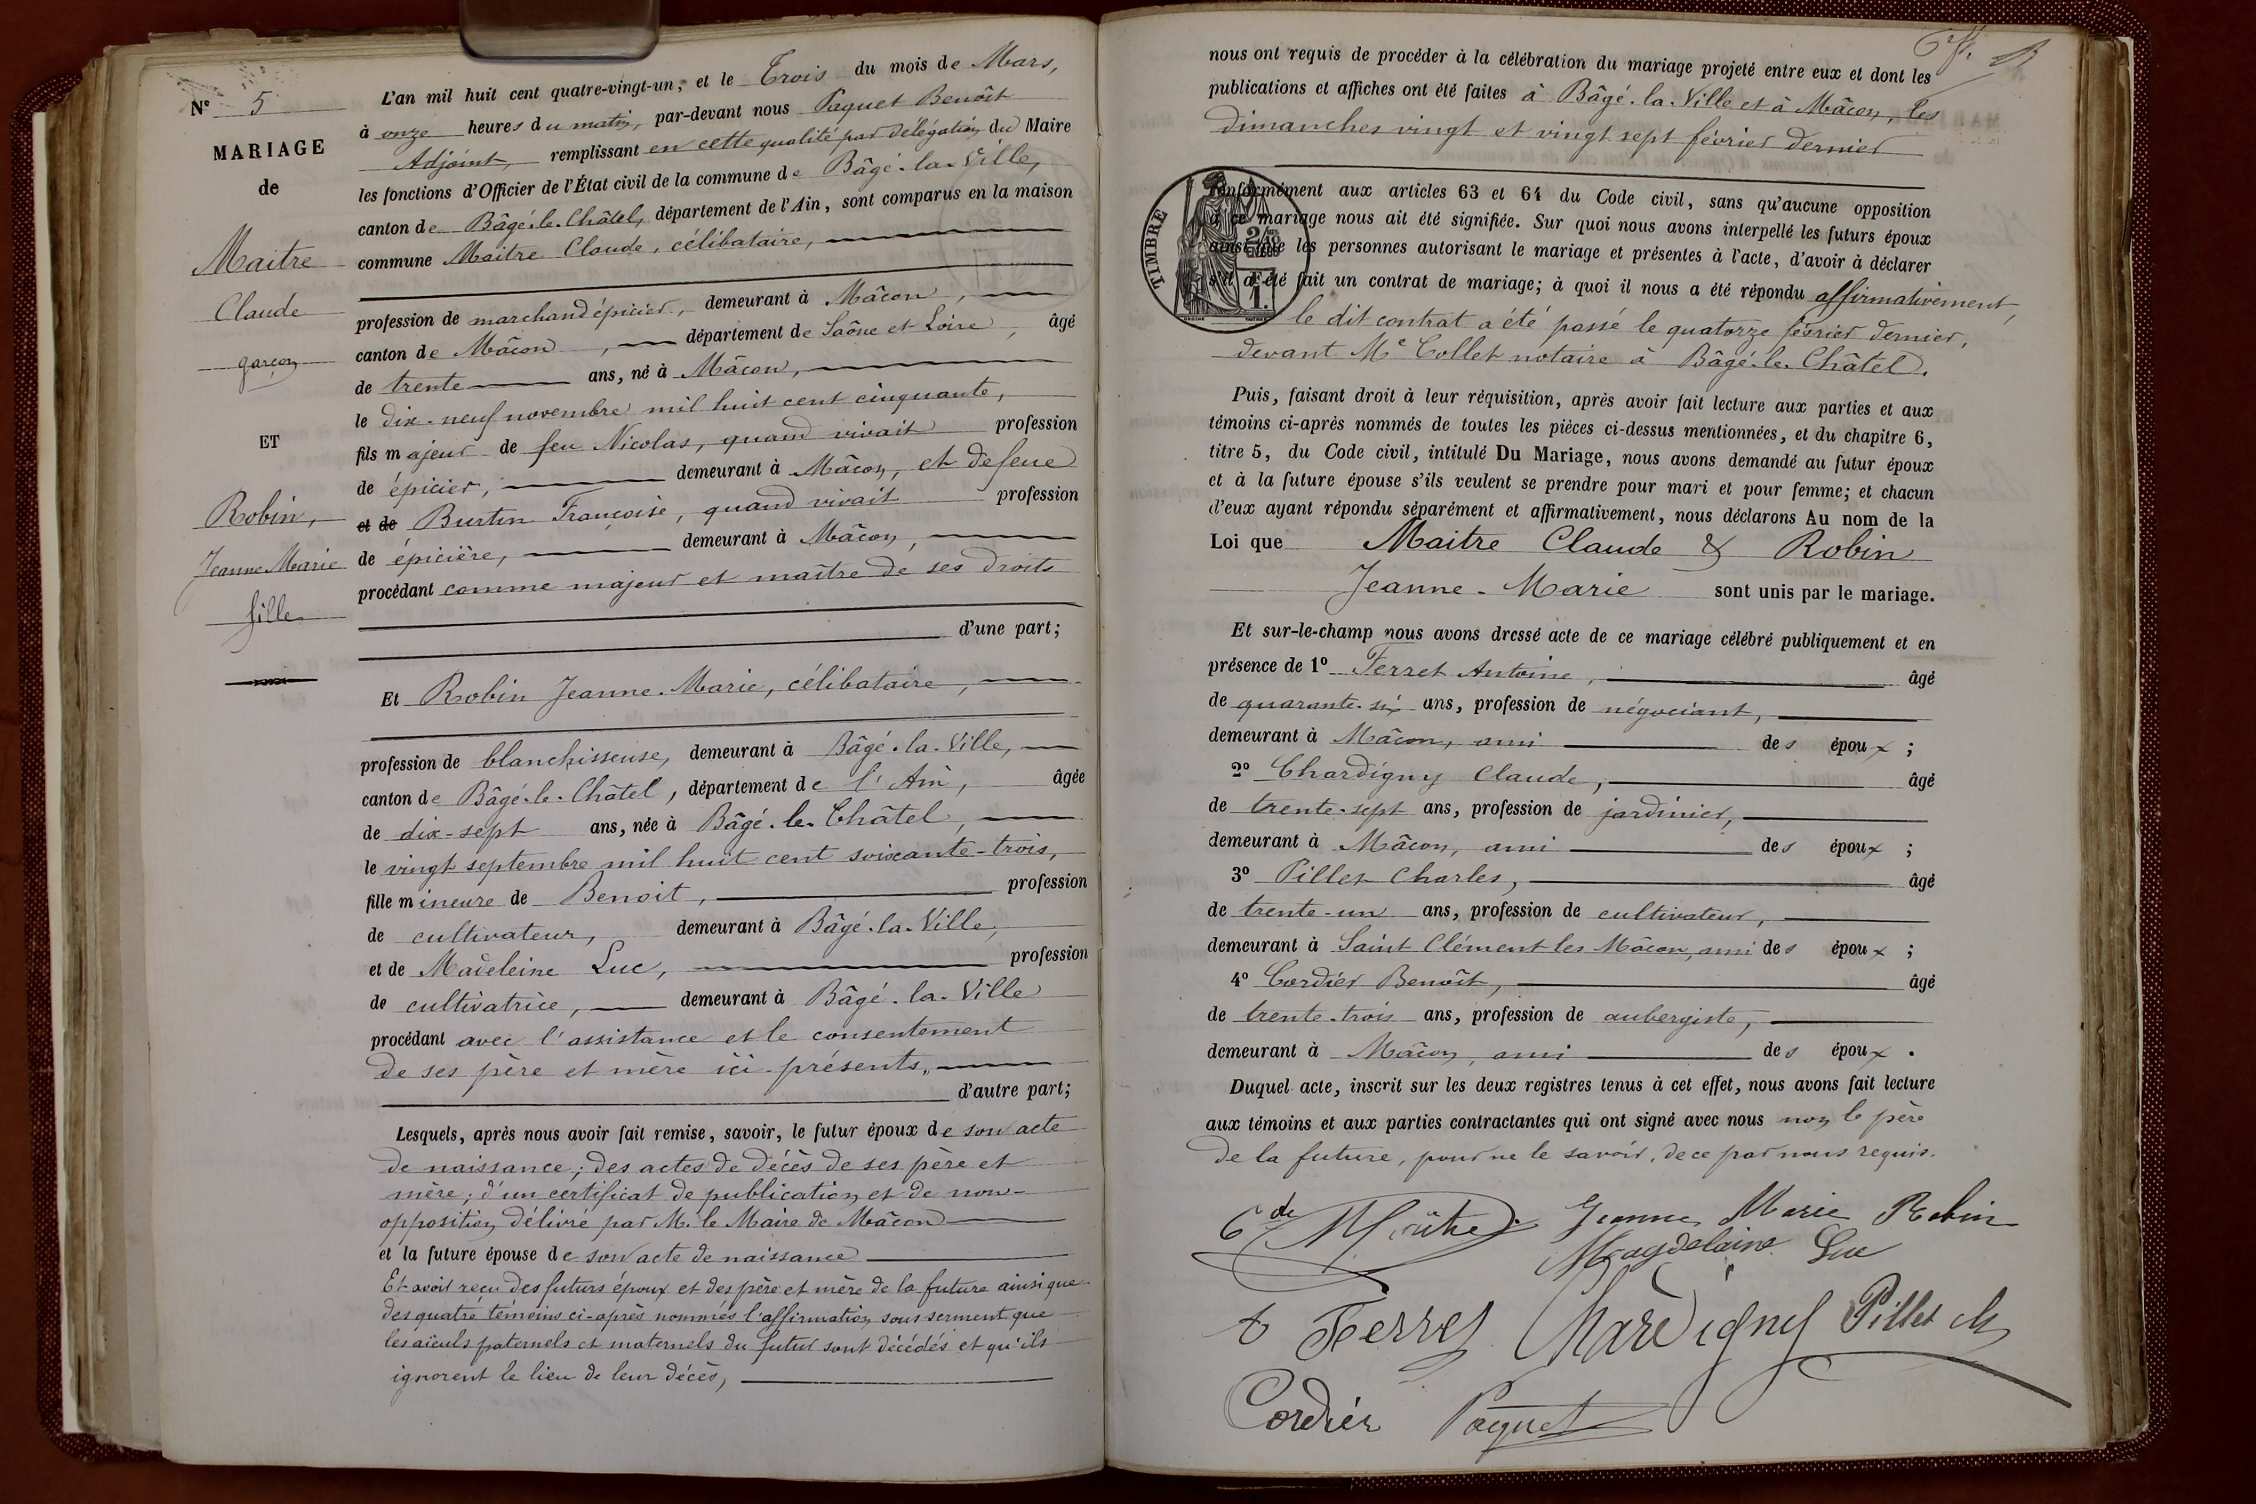 N° 5
MARIAGE
de
Maitre
Claude
garçon
ET
Robin,
Jeanne Marie
fille
L'an mil huit cent quatre-vingt-un, et le Trois du mois de Mars,
à onze heures du matin, par-devant nous Paquet Benoît
Adjoint, remplissant en cette qualité par délégation du Maire
les fonctions d'Officier de l'État civil de la commune de Bâgé-la-Ville,
canton de Bâgé-le-Châtel, département de l'Ain, sont comparus en la maison
commune Maitre Claude, célibataire,
profession de marchand épicier, demeurant à Mâcon,
canton de Mâcon, département de Saône et Loire, âgé
de trente ans, né à Mâcon,
le dix-neuf novembre mil huit cent cinquante,
fils majeur de feu Nicolas, quand vivait profession
de épicier, demeurant à Mâcon, et de feue
et de Burtin Françoise, quand vivait profession
de épicière, demeurant à Mâcon,
procédant comme majeur et maître de ses droits
d'une part;
Et Robin Jeanne-Marie, célibataire,
profession de blanchisseuse, demeurant à Bâgé-la-Ville,
canton de Bâgé-le-Châtel, département de l'Ain, âgée
de dix-sept ans, née à Bâgé-le-Châtel,
le vingt septembre mil huit cent soixante-trois,
fille mineure de Benoit, profession
de cultivateur, demeurant à Bâgé-la-Ville,
et de Madeleine Luc, profession
de cultivatrice, demeurant à Bâgé-la-Ville
procédant avec l'assistance et le consentement
de ses père et mère ici présents,
d'autre part;
Lesquels, après nous avoir fait remise, savoir, le futur époux de son acte
de naissance; des actes de décès de ses père et
mère; d'un certificat de publication et de non-
opposition délivré par M. le Maire de Mâcon
et la future épouse de son acte de naissance
Et avoir reçu des futurs époux et des père et mère de la future ainsi que
des quatre témoins ci-après nommés l'affirmation sous serment que
les aïeuls paternels et maternels du futur sont décédés et qu'ils
ignorent le lieu de leur décès,
nous ont requis de procéder à la célébration du mariage projeté entre eux et dont les
publications et affiches ont été faites à Bâgé-la-Ville et à Mâcon, les
dimanches vingt et vingt sept février dernier
conformément aux articles 63 et 64 du Code civil, sans qu'aucune opposition
à ce mariage nous ait été signifiée. Sur quoi nous avons interpellé les futurs époux
ainsi que les personnes autorisant le mariage et présentes à l'acte, d'avoir à déclarer
s'il a été fait un contrat de mariage; à quoi il nous a été répondu affirmativement,
le dit contrat a été passé le quatorze février dernier,
devant Me Collet notaire à Bâgé-le-Châtel.
TIMBRE
Puis, faisant droit à leur réquisition, après avoir fait lecture aux parties et aux
témoins ci-après nommés de toutes les pièces ci-dessus mentionnées, et du chapitre 6,
titre 5, du Code civil, intitulé Du Mariage, nous avons demandé au futur époux
et à la future épouse s'ils veulent se prendre pour mari et pour femme; et chacun
d'eux ayant répondu séparément et affirmativement, nous déclarons Au nom de la
Loi que Maitre Claude & Robin
Jeanne-Marie sont unis par le mariage.
Et sur-le-champ nous avons dressé acte de ce mariage célébré publiquement et en
présence de 1° Ferret Antoine, âgé
de quarante-six ans, profession de négociant,
demeurant à Mâcon, ami des époux ;
2° Chardigny Claude, âgé
de trente-sept ans, profession de jardinier,
demeurant à Mâcon, ami des époux ;
3° Pillet Charles, âgé
de trente-un ans, profession de cultivateur,
demeurant à Saint Clément les Mâcon, ami des époux ;
4° Cordier Benoît, âgé
de trente-trois ans, profession de aubergiste,
demeurant à Mâcon, ami des époux.
Duquel acte, inscrit sur les deux registres tenus à cet effet, nous avons fait lecture
aux témoins et aux parties contractantes qui ont signé avec nous non le père
de la future, pour ne le savoir, de ce par nous requis.
Cde Maître Jeanne Marie Robin
Magdelaine Luc
Ferret Chardigny Pillet ch
Cordier Paquet